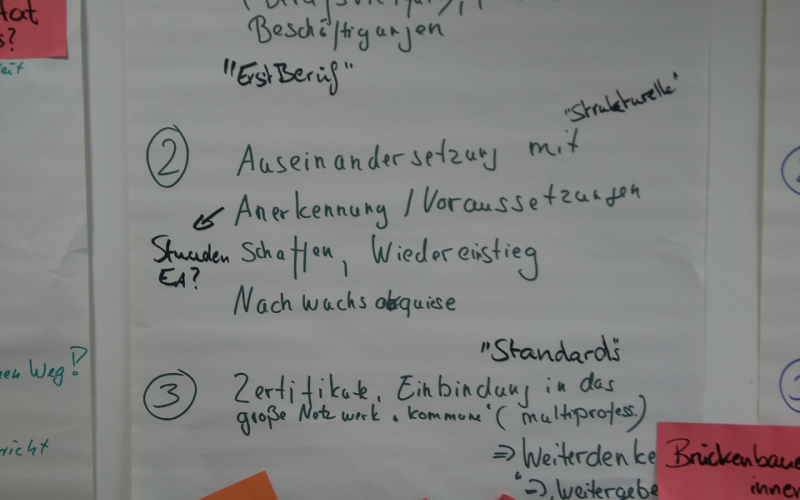 Beschäftigungen
"ErstBeruf"
"Strukturelle"
② Auseinandersetzung mit
Anerkennung / Voraussetzungen
Schaffen, Wiedereinstieg
Stunden
EA?
Nachwuchsakquise
"Standards"
③ Zertifikate, Einbindung in das
große Netzwerk "Kommune" (multiprofess.)
⇒ Weiterdenke
"⇒ Weitergebe
Brückenbaue
innen
tat
s?
eit
nen Weg?
richt